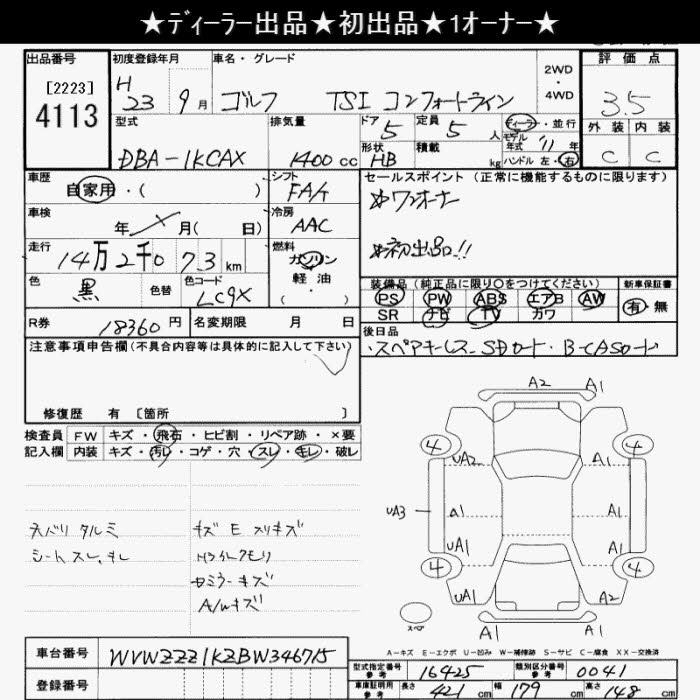 ★ディーラー出品★初出品★1オーナー★
出品番号 初度登録年月 車名・グレード 2WD・4WD 評価点
[2223]
4113
H 23 9月 ゴルフ TSI コンフォートライン 3.5
型式 排気量 ドア 定員 ディーラー・並行 外装 内装
DBA-1KCAX 1400cc 5 5人 モデル年式 '11年 C C
形状 HB 積載 kg ハンドル 左・右
車歴 シフト セールスポイント(正常に機能するものに限ります)
自家用・( ) FA/T ☆ワンオーナー
車検 冷房
年 月( 日) AAC
走行 燃料 ☆初出品!!
14万2千073km ガソリン
軽油
・( )
色 色替 色コード
黒 LC9X
装備品(純正品に限り〇をつけてください) 新車保証書
PS PW ABS エアB AW 有・無
SR ナビ TV カワ
R券 18360円 名変期限 月 日
後日品
・スペアキーレス・SDカード・B-CASカード
注意事項申告欄(不具合内容等は具体的に記入して下さい)
修復歴 有 [箇所 ]
検査員 FW キズ・飛石・ヒビ割・リペア跡・×要
記入欄 内装 キズ・汚レ・コゲ・穴・スレ・キレ・破レ
天バリ タルミ キズ E スリキズ
シートスレ、キレ
ミラーキズ
A/Wキズ
A2 A1
4 4
UA2 A1
UA3 a1 A1
UA1 A1
4 4
UA1 A2
スペア A1 A1
A-キズ E-エクボ U-凹み W-補修跡 S-サビ C-腐食 XX-交換済
車台番号 WVWZZZ1KZBW346715
型式指定番号 参考 16425 類別区分番号 参考 0041
登録番号
車庫証明用 参考 長さ 421cm 幅 179cm 高さ 148cm